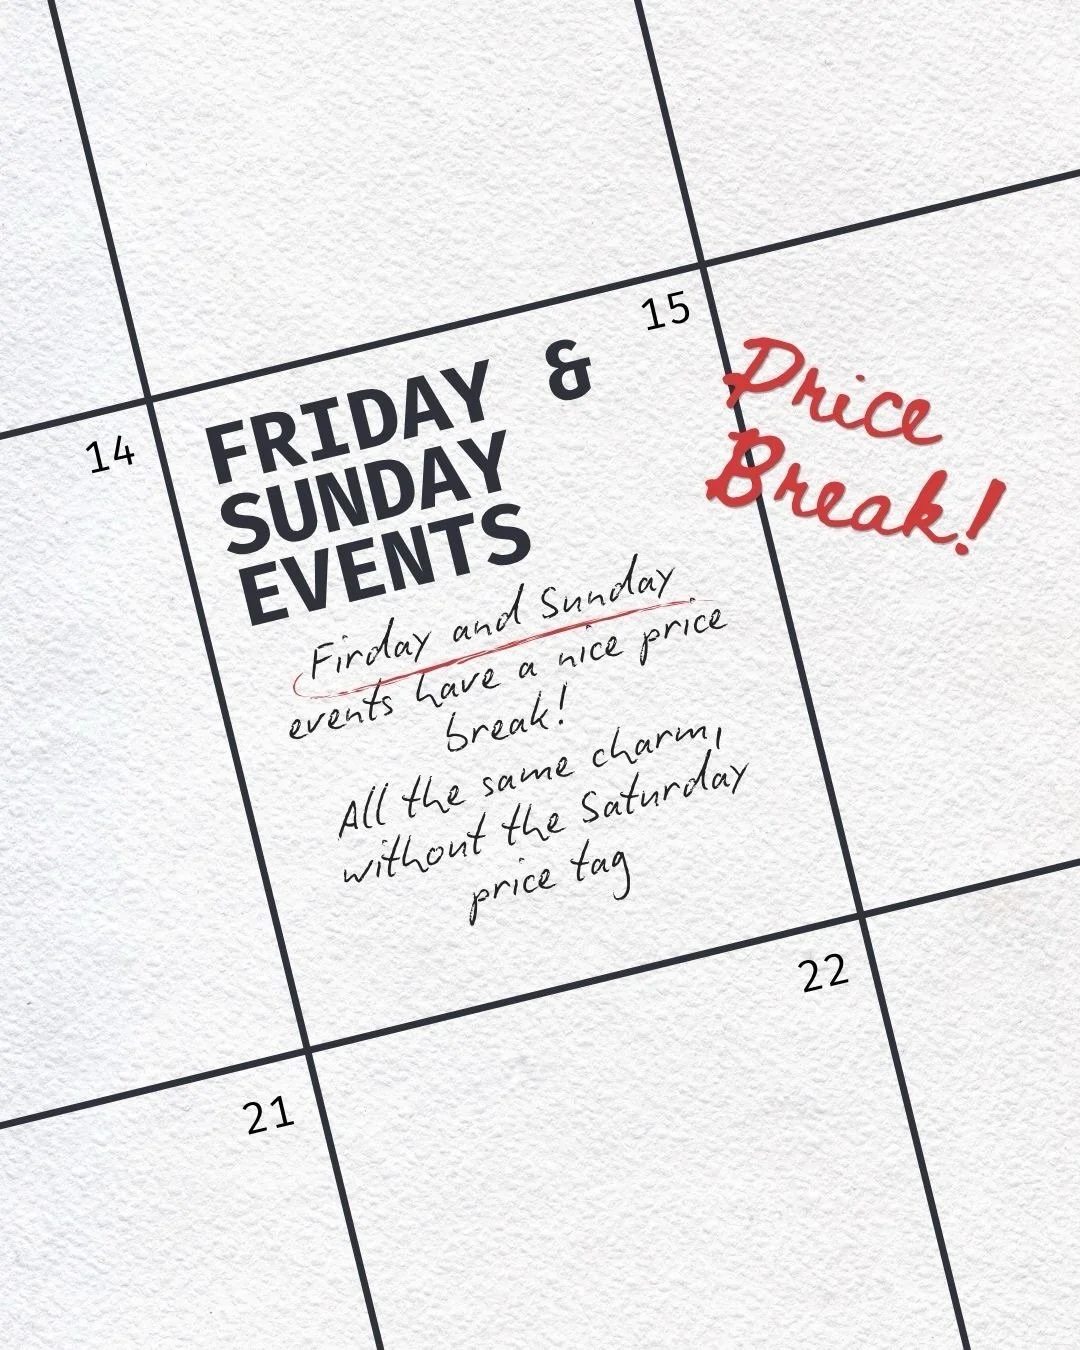 15
FRIDAY &
SUNDAY
EVENTS
Price
Break!
14
Firday and Sunday
events have a nice price
break!
All the same charm,
without the Saturday
price tag
22
21